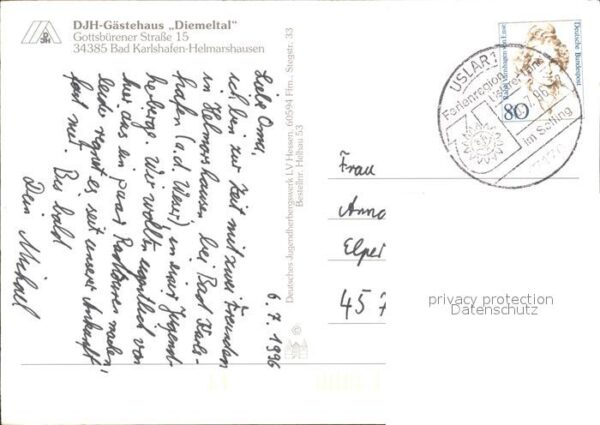 DJH-Gästehaus „Diemeltal"
Gottsbürener Straße 15
34385 Bad Karlshafen-Helmarshausen
DJH
6.7.1996
Liebe Oma,
ich bin zur Zeit mit zwei Freunden
in Helmarshausen bei Bad Karls-
hafen (a.d. Weser) in einer Jugend-
herberge. Wir wollten eigentlich von
hier aus ein paar Radtouren machen,
leider regnet es seit unserer Ankunft
fast nur. Bis bald
Dein Michael
Deutsches Jugendherbergswerk LV Hessen, 60594 Ffm., Stegstr. 33
Bestellnr. Helbau 53
Deutsche Bundespost
80
USLAR 1
Ferienregion
Uslarer Land
im Solling
Frau
Anna
Elper
45 7
privacy protection
Datenschutz